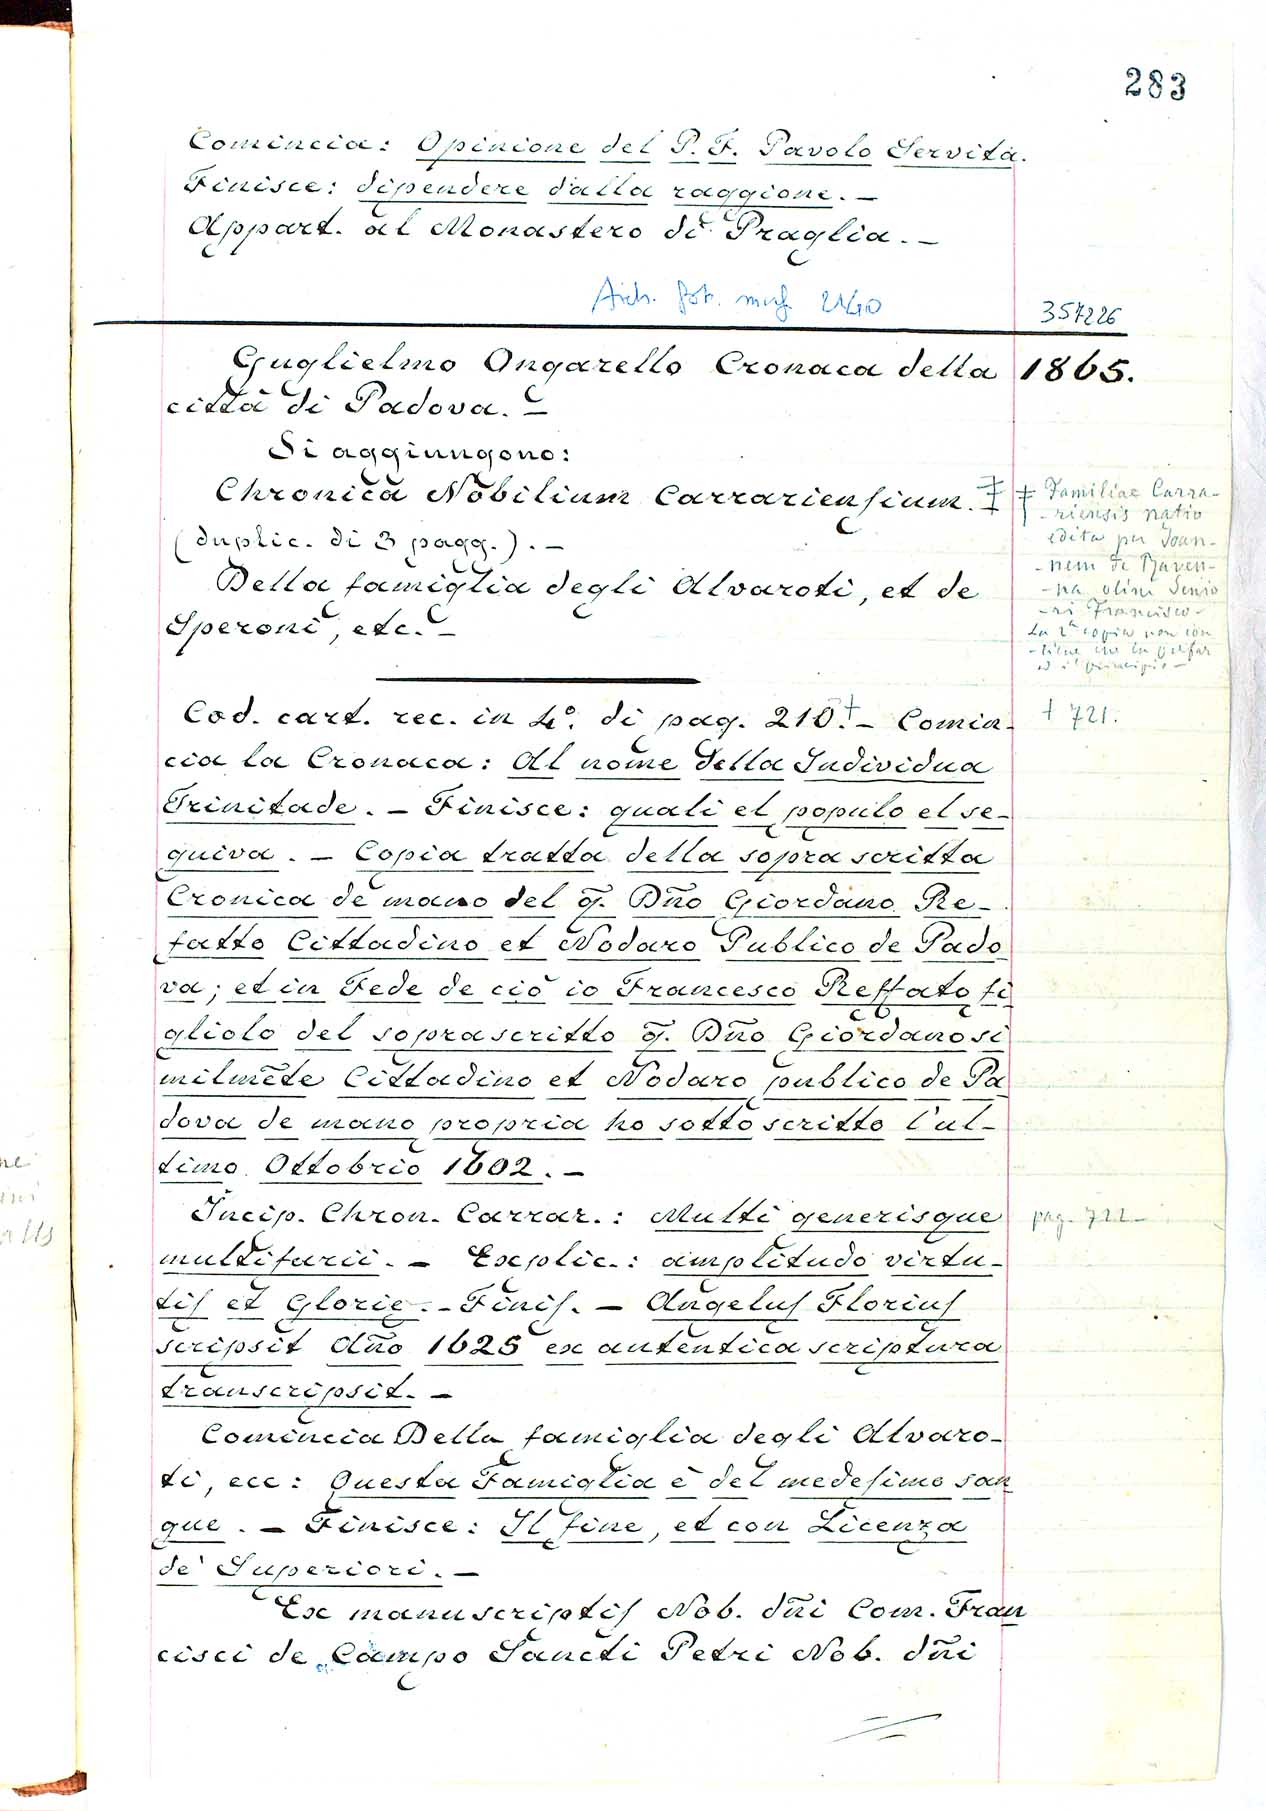 283
Comincia: Opinione del P. F. Pavolo Servita.
Finisce: dipendere dalla raggione. —
Appart. al Monastero di Praglia. —
Arch. fot. 2140
357226
Guglielmo Ongarello Cronaca della 1865.
città di Padova. —
Si aggiungono:
Chronica Nobilium Carrariensium. ‡
(duplic. di 3 pagg.). —
Della famiglia degli Alvaroti, et de
Speroni, etc. —
‡ Familiae Carra-
-riensis natio
edita per Joan-
-nem de Raven-
-na olim
Francisco
La 2ª copia non con
-tiene che la prefaz
ed il principio —
Cod. cart. rec. in 4º. di pag. 210.† — Comin-
† 721.
cia la Cronaca: Al nome della Individua
Trinitade. — Finisce: quali el populo el se-
quiva. — Copia tratta della soprascritta
Cronica de mano del q̃. Dño Giordano Re-
fatto Cittadino et Nodaro Publico de Pado
va; et in Fede de ciò io Francesco Reffato fi
gliolo del soprascritto q̃. Dño Giordano si
milmẽte Cittadino et Nodaro publico de Pa
dova de mano propria ho sottoscritto l'ul-
timo Ottobrio 1602. —
Incip. Chron. Carrar.: Multi generisque
pag. 722 —
multifarii. — Explic.: amplitudo virtu-
tis et Glorie. — Finis. — Angelus Florius
scripsit Año 1625 ex autentica scriptura
transcripsit. —
Comincia Della famiglia degli Alvaro-
ti, ecc: Questa Famiglia è del medesimo san
gue. — Finisce: Il fine, et con Licenza
de' Superiori. —
Ex manuscriptis Nob. dñi Com. Fran
cisci de Campo Sancti Petri Nob. dñi